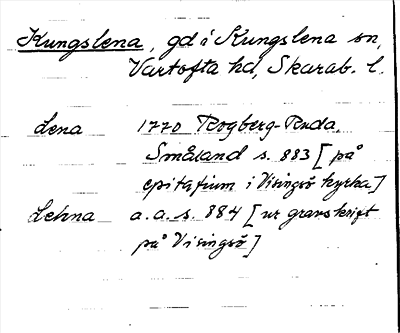 Kungslena, gd i Kungslena sn,
Vartofta hd, Skarab. l.
Lena 1770 Rogberg-Ruda,
Småland s. 883 [på
epitafium i Visingsö kyrka]
Lehna a.a. s. 884 [ur gravskrift
på Visingsö]